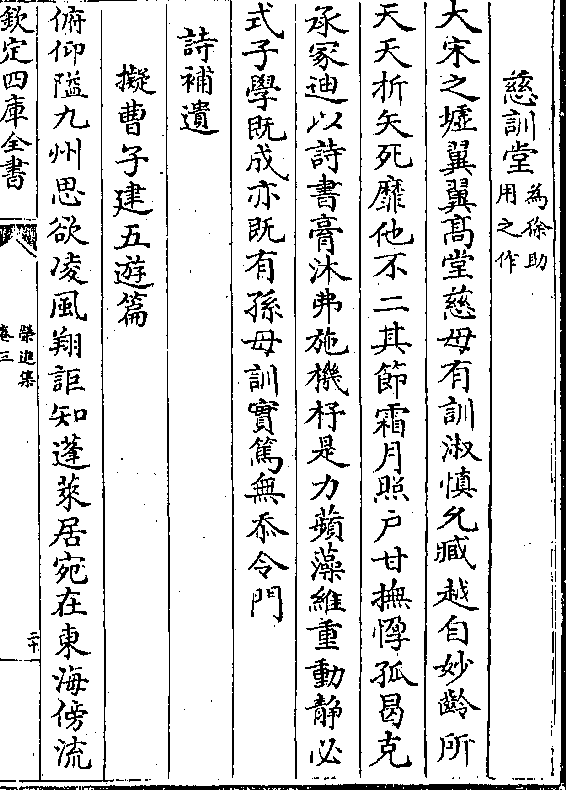 慈訓堂為徐助用之作
大宋之墟翼翼髙堂慈母有訓淑慎允臧越自妙齡所
天天折矢死靡他不二其節霜月照戸甘撫惸孤曷克
承家迪以詩書膏沐弗施機杼是力蘋藻維重動静必
式子學既成亦既有孫母訓實篤無忝令門
詩補遺
擬曹子建五遊篇
俯仰隘九州思欲凌風翔詎知蓬萊居宛在東海傍流
欽定四庫全書
榮進集
卷三
二十